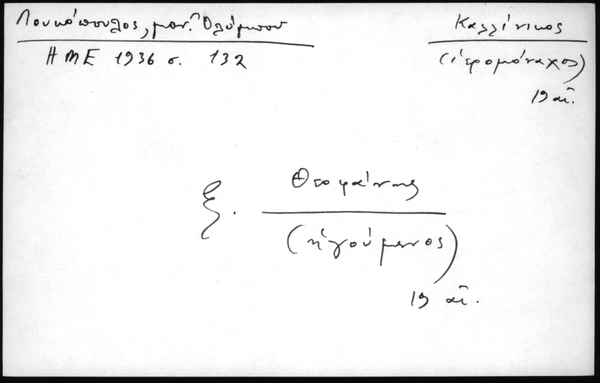 Λουκόπουλος, μον. Ὀλύμπου
ΗΜΕ 1936 σ. 132
Καλλίνικος
(ἱερομόναχος)
19 αἰ.
ξ. Θεοφάνης
(ἡγούμενος)
19 αἰ.